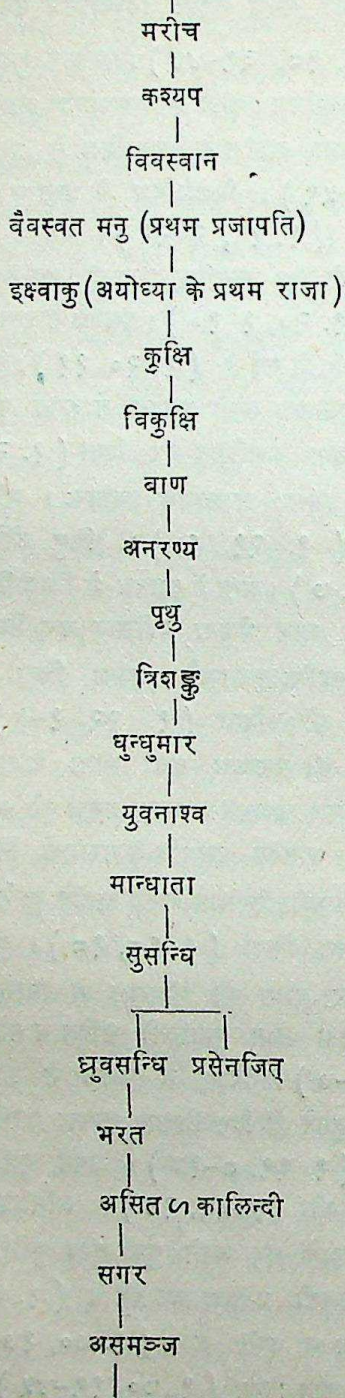 मरीच
कश्यप
विवस्वान
वैवस्वत मनु (प्रथम प्रजापति)
इक्ष्वाकु (अयोध्या के प्रथम राजा)
कुक्षि
विकुक्षि
बाण
अनरण्य
पृथु
त्रिशङ्कु
धुन्धुमार
युवनाश्व
मान्धाता
सुसन्धि
ध्रुवसन्धि प्रसेनजित्
भरत
असित ᔕ कालिन्दी
सगर
असमञ्ज